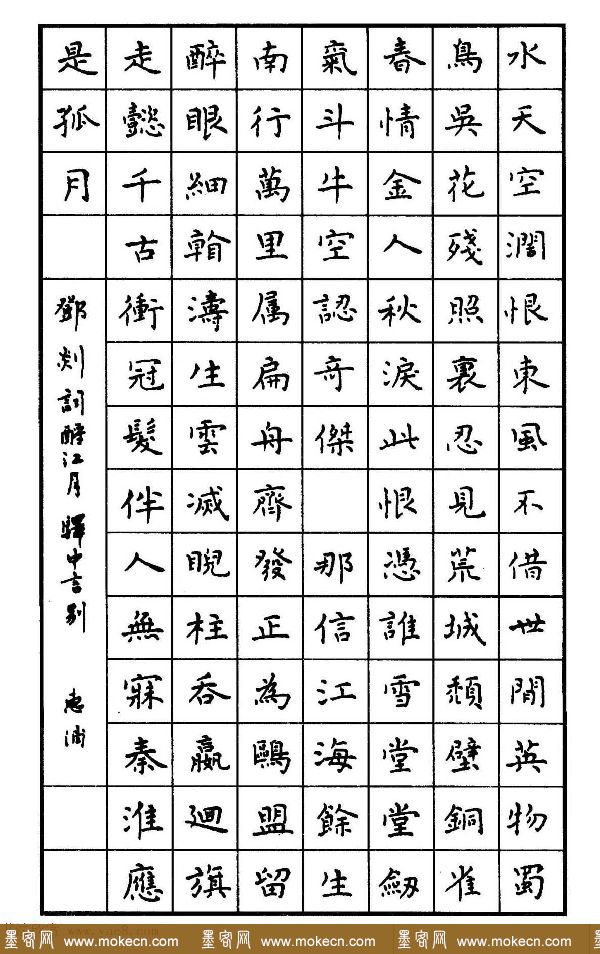 水天空濶恨東風不借世間英物蜀
鳥吳花殘照裏忍見荒城頹壁銅雀
春情金人秋淚此恨憑誰雪堂堂劔
氣斗牛空認奇傑 那信江海餘生
南行萬里属扁舟齊發正為鷗盟留
醉眼細看濤生雲滅睨柱吞嬴廻旗
走懿千古衝冠髮伴人無寐秦淮應
是孤月
鄧剡詞酹江月 驛中言別 惠浦
墨客网 www.mokecn.com 墨客网 www.mokecn.com 墨客网 www.mokecn.com